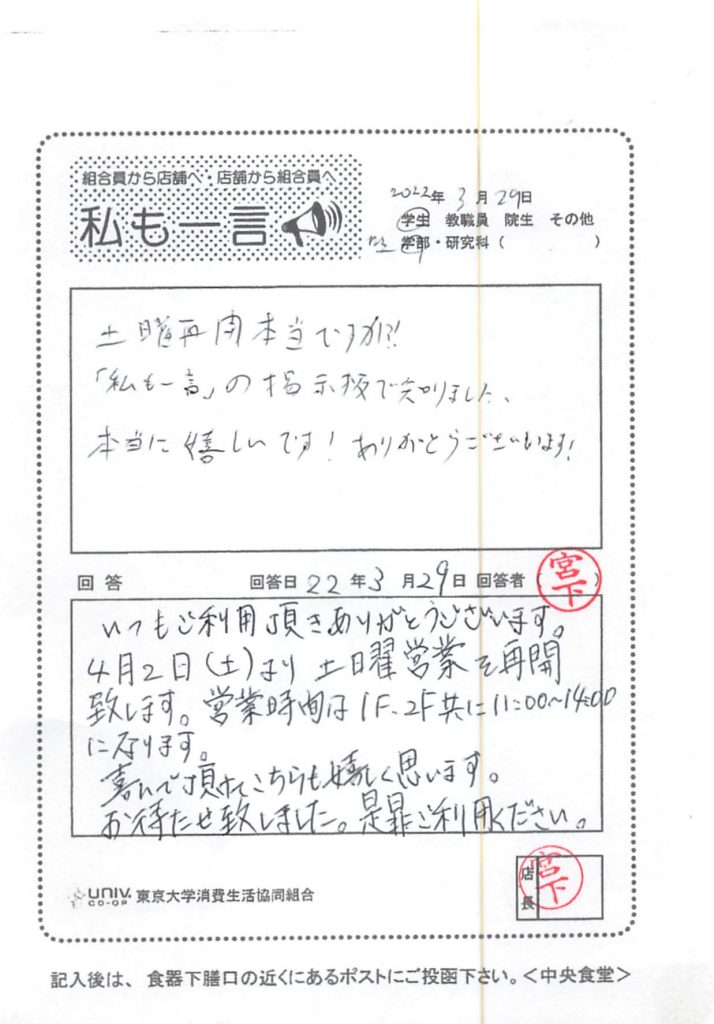 組合員から店舗へ・店舗から組合員へ
私も一言
2022年 3月 29日
学生 教職員 院生 その他
学部・研究科( )
土曜再開本当ですか!?
「私も一言」の掲示板で知りました、
本当に嬉しいです！ありがとうございます!
回答 回答日 22年3月29日 回答者( 宮下 )
いつもご利用頂きありがとうございます。
4月2日(土)より 土曜営業を再開
致します。営業時間は1F、2F共に11:00〜14:00
になります。
喜んで頂けてこちらも嬉しく思います。
お待たせ致しました。是非ご利用ください。
店長 宮下
UNIV. CO-OP 東京大学消費生活協同組合
記入後は、食器下膳口の近くにあるポストにご投函下さい。<中央食堂>